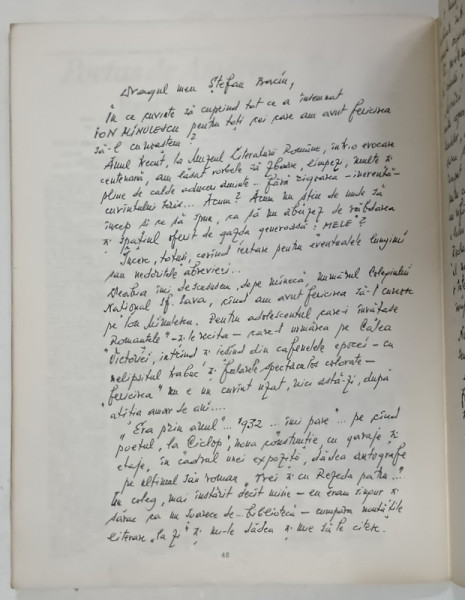 Dragul meu Ștefan Baciu,
În ce cuvinte să cuprind tot ce a însemnat
ION MINULESCU pentru toți cei care am avut fericirea
să-l cunoaștem?
Anul trecut, la Muzeul Literaturii Române, într-o evocare
centenară, am lăsat vorbele să zboare, limpezi, multe și
pline de calde aduceri aminte... fără rigoarea - inerentă -
cuvîntului scris... Acum? Acum nu știu de unde să
încep și ce să spun, ca să nu abuzez de răbdarea
și spațiul oferit de gazda generoasă: "MELE"?
Încerc, totuși, cerînd iertare pentru eventualele lungimi
sau nedoritele abrevieri...
Deabia îmi descususem, de pe mînecă, numărul Colegiului
Național Sf. Sava, cînd am avut fericirea să-l cunosc
pe Ion Minulescu. Pentru adolescentul care-i învățase
"Romanțele" - și le recita - care-l urmărea pe Calea
Victoriei, intrînd și ieșind din cafenelele epocei - cu
nelipsitul trabuc și fularele spectaculos colorate -
"fericirea" nu e un cuvînt uzat, nici astă-zi, după
atîtia amar de ani....
"Era prin anul"... "1932 ... îmi pare"... pe cînd
poetul, la "Ciclop", noua construcție, cu garaje și
etaje, în cadrul unei expoziții, dădea autografe
pe ultimul său roman "Trei și cu Rezeda patru..."
Un coleg, mai înstărit decît mine - eu eram singur și
sărac ca un șoarece de... bibliotecă - cumpăra noutățile
literare "la zi" și mi-le dădea și mie să le citesc.
48